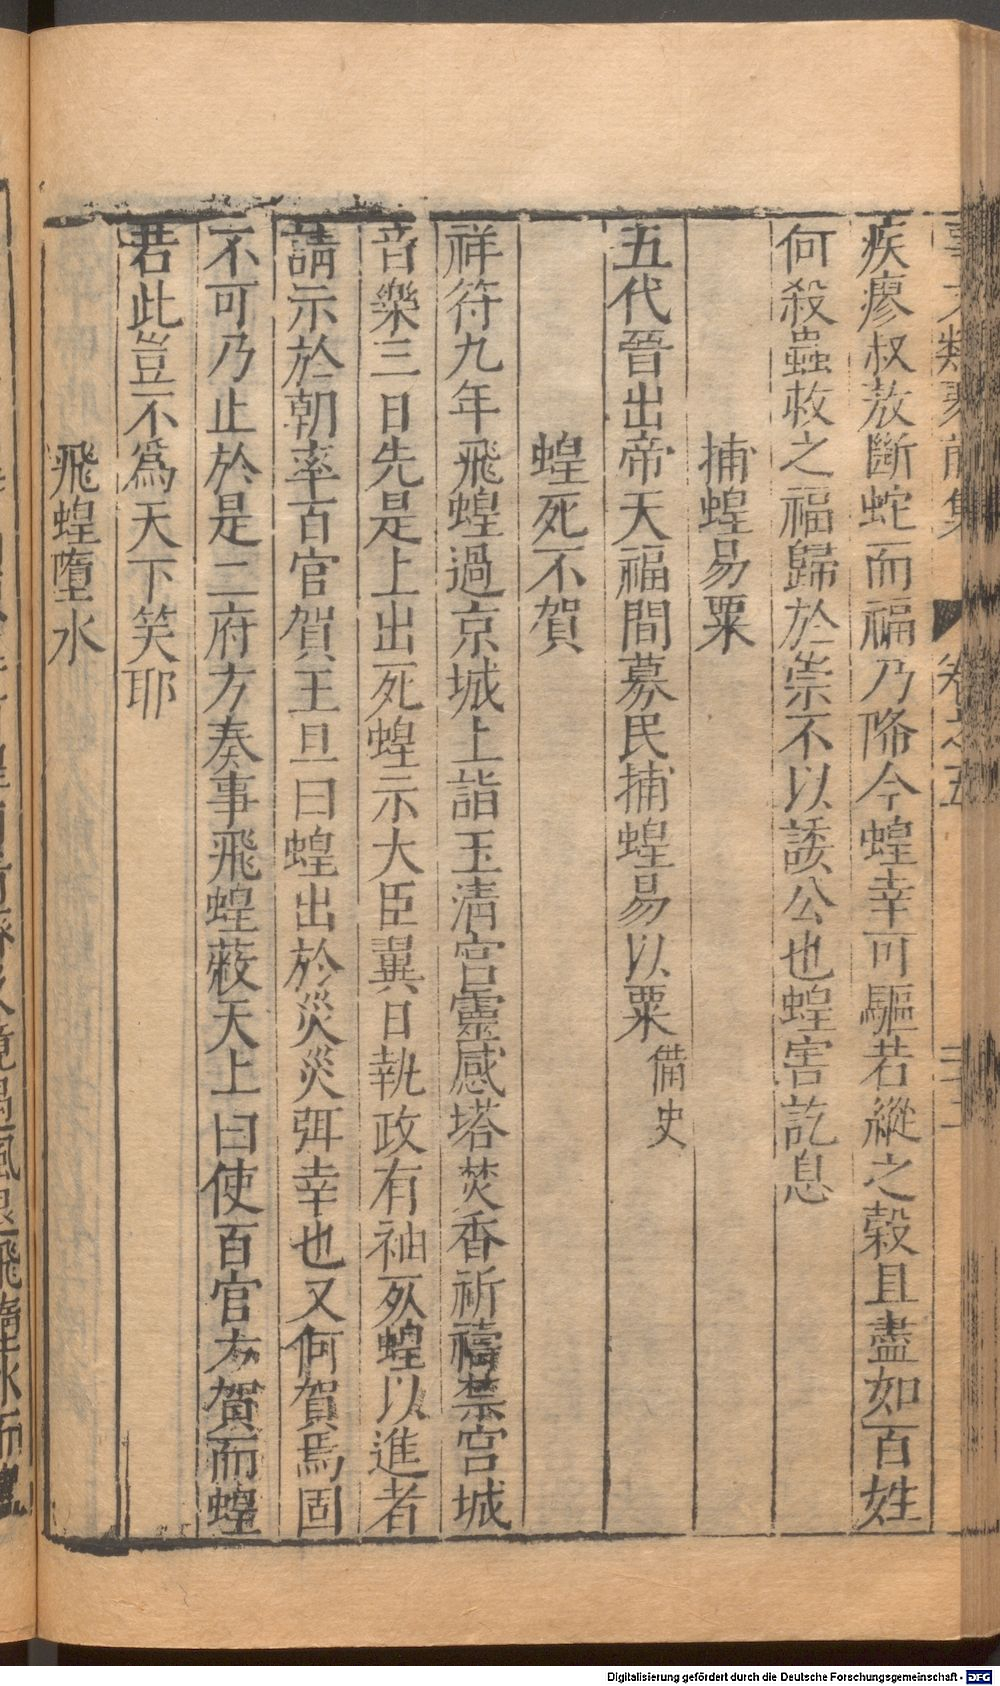 事文類聚前集 卷之五
疾瘳叔敖斷蛇而福乃降今蝗幸可驅若縱之穀且盡如百姓
何殺蟲救之福歸於崇不以諉公也蝗害訖息
捕蝗易粟
五代晉出帝天福間募民捕蝗易以粟 備史
蝗死不賀
祥符九年飛蝗過京城上詣玉清宮靈感塔焚香祈禱禁宮城
音樂三日先是上出死蝗示大臣翼日執政有袖死蝗以進者
請示於朝率百官賀王旦曰蝗出於災災弭幸也又何賀焉固
不可乃止於是二府方奏事飛蝗蔽天上曰使百官方賀而蝗
若此豈不爲天下笑耶
飛蝗墮水
Digitalisierung gefördert durch die Deutsche Forschungsgemeinschaft - DFG